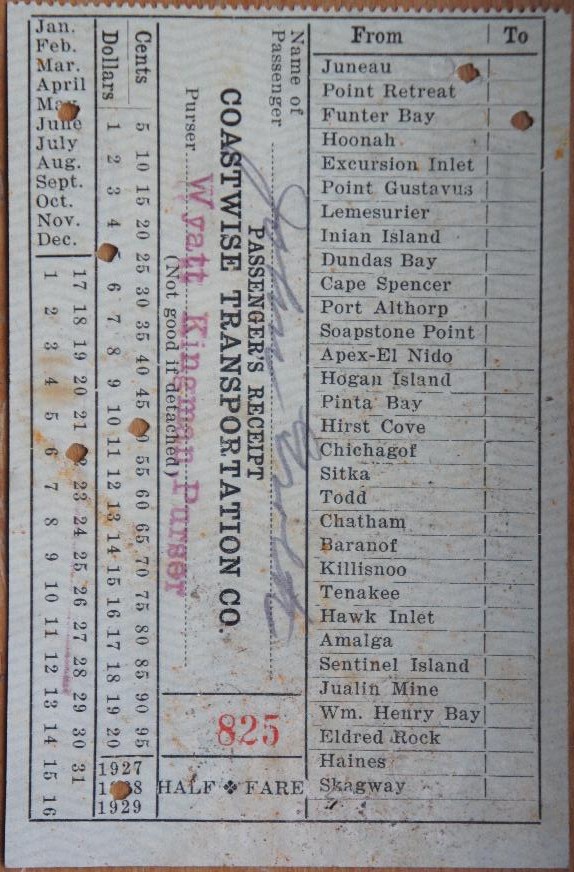 Jan.
Feb.
Mar.
April
May
June
July
Aug.
Sept.
Oct.
Nov.
Dec.
1 2 3 4 5 6 7 8 9 10 11 12 13 14 15 16
17 18 19 20 21 23 24 25 26 27 28 29 30 31
Dollars 1 2 3 4 6 7 8 9 10 11 12 13 14 15 16 17 18 19 20
Cents 5 10 15 20 25 30 35 40 45 55 60 65 70 75 80 85 90 95
1927
1928
1929
Name of
Passenger
PASSENGER'S RECEIPT
COASTWISE TRANSPORTATION CO.
Purser Wyatt Kingman Purser
(Not good if detached)
825
HALF FARE
From To
Juneau
Point Retreat
Funter Bay
Hoonah
Excursion Inlet
Point Gustavus
Lemesurier
Inian Island
Dundas Bay
Cape Spencer
Port Althorp
Soapstone Point
Apex-El Nido
Hogan Island
Pinta Bay
Hirst Cove
Chichagof
Sitka
Todd
Chatham
Baranof
Killisnoo
Tenakee
Hawk Inlet
Amalga
Sentinel Island
Jualin Mine
Wm. Henry Bay
Eldred Rock
Haines
Skagway